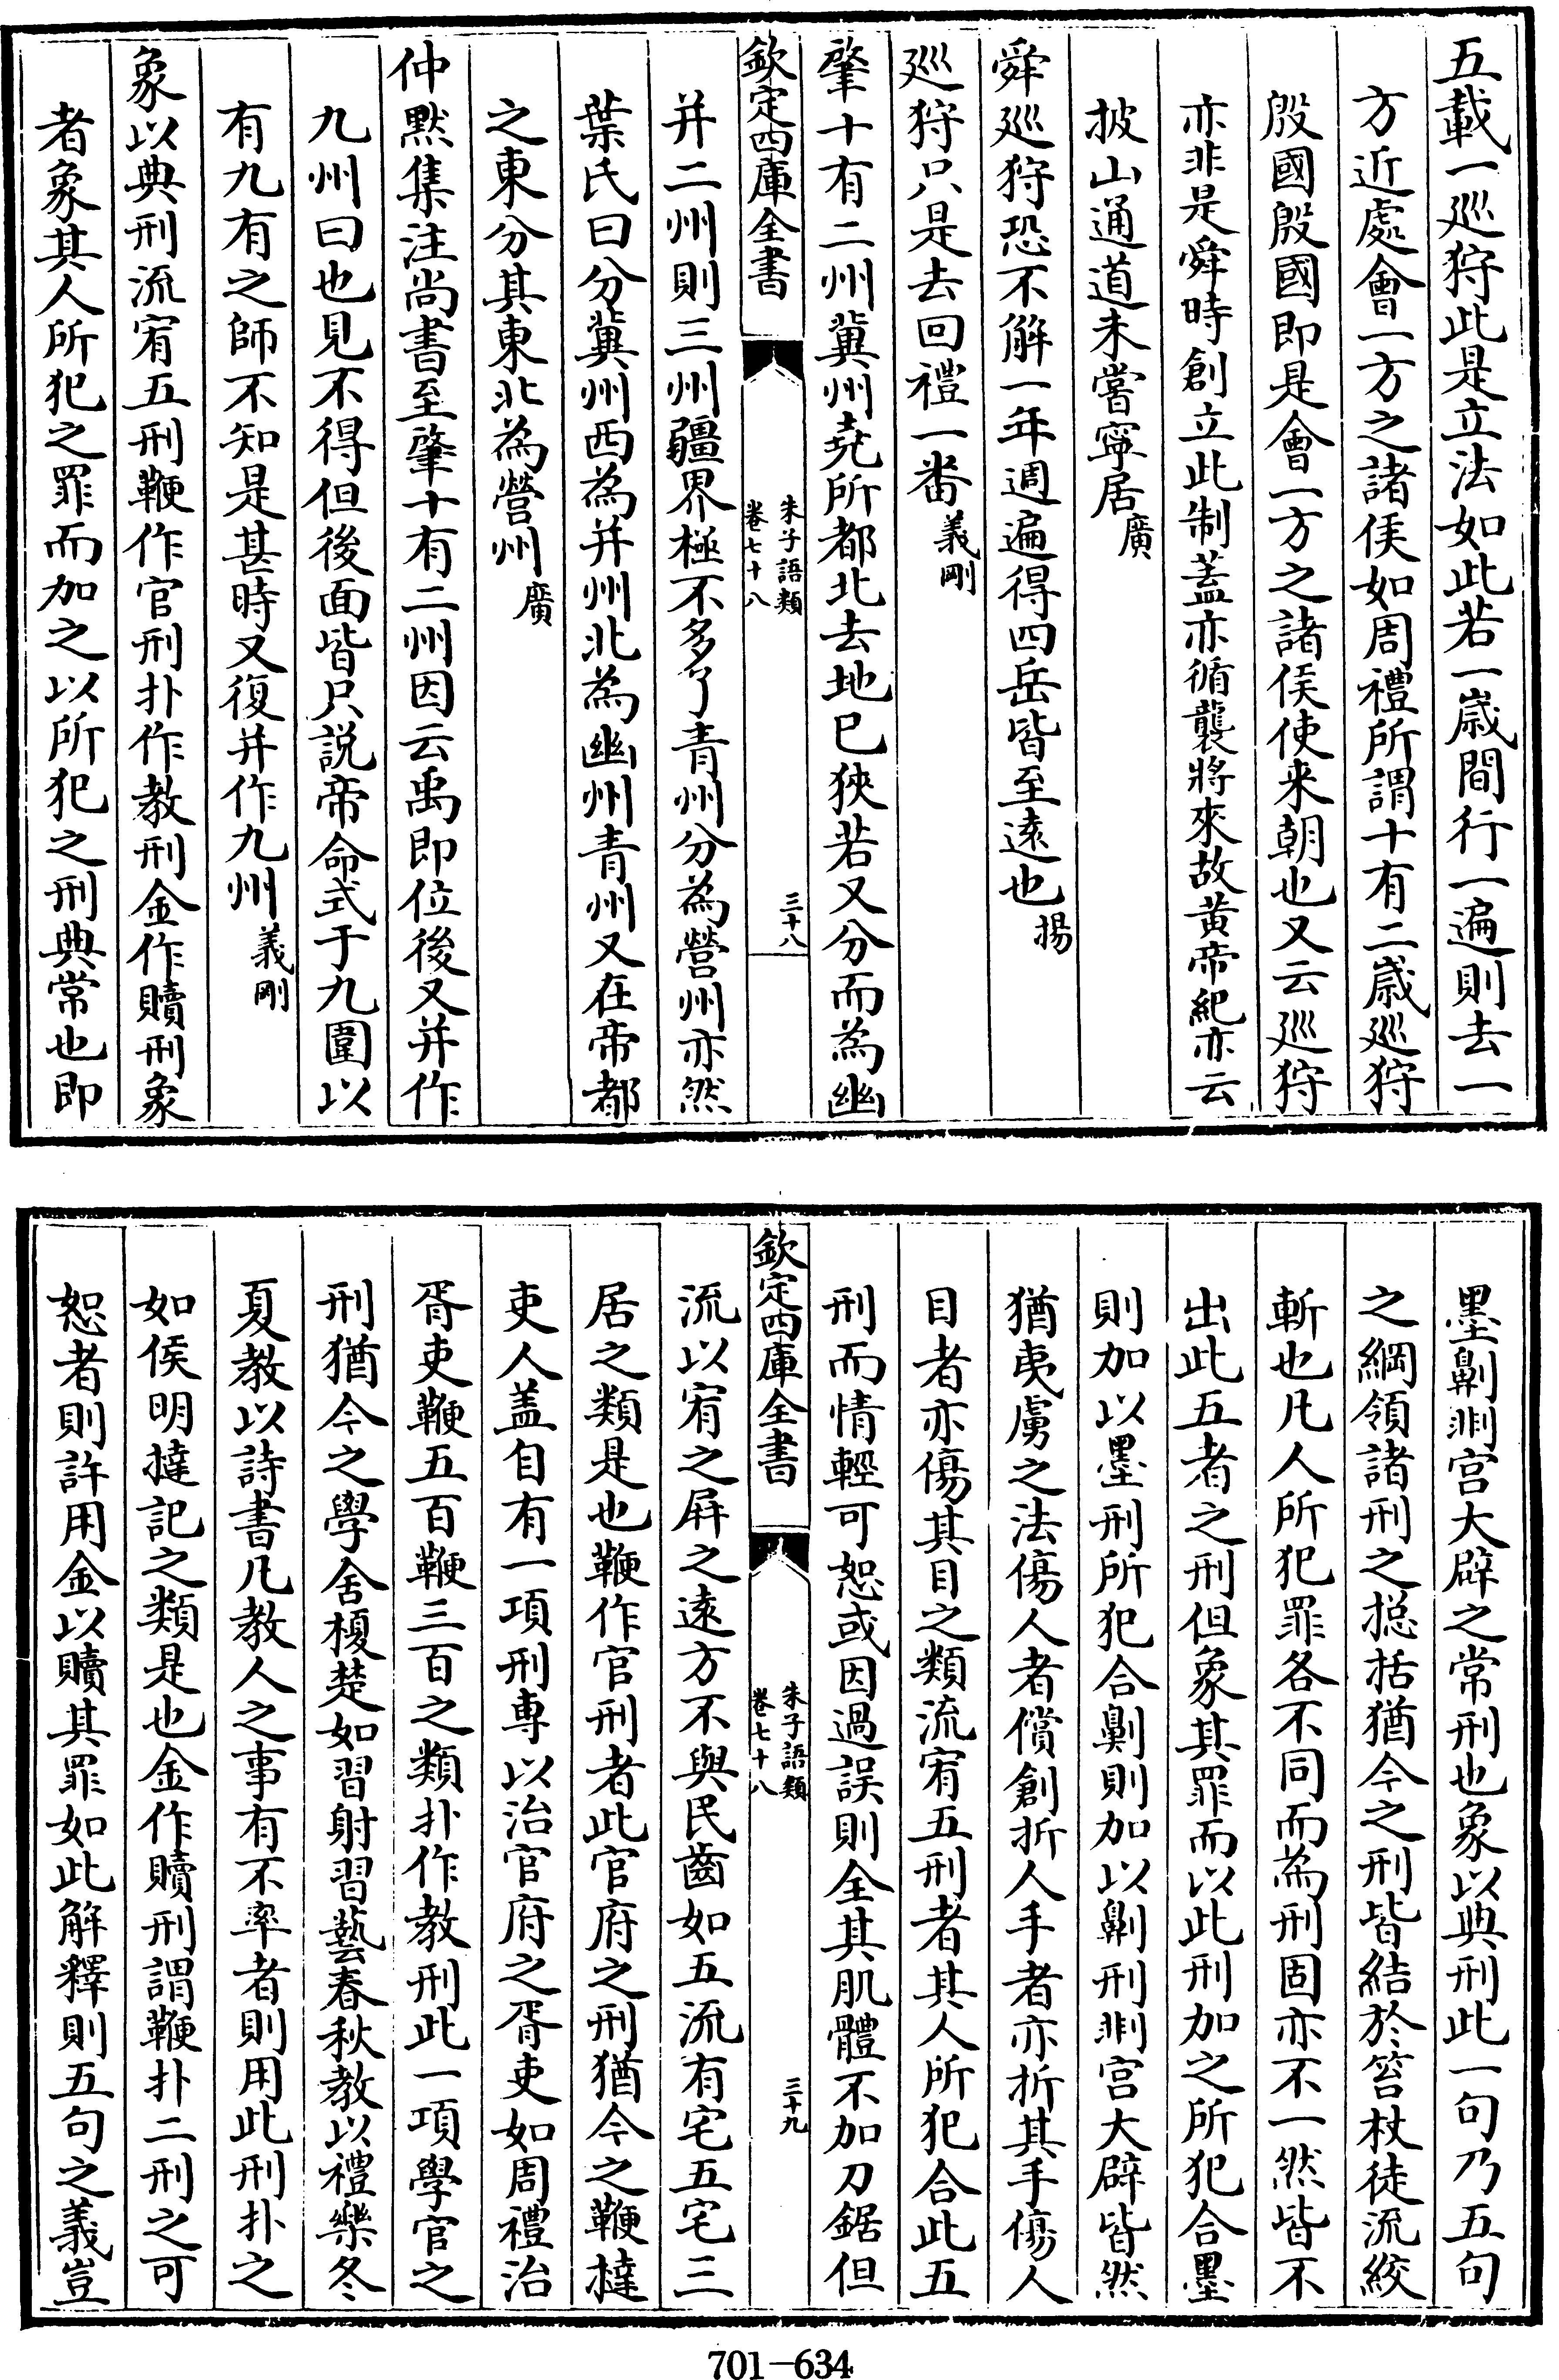 五載一巡狩此是立法如此若一嵗間行一遍則去一
方近處會一方之諸侯如周禮所謂十有二嵗巡狩
殷國殷國即是會一方之諸侯使來朝也又云巡狩
亦非是舜時創立此制蓋亦循襲將來故黄帝紀亦云
披山通道未嘗寧居廣
舜巡狩恐不解一年週遍得四岳皆至逺也揚
巡狩只是去回禮一畨義剛
肇十有二州冀州堯所都北去地已狹若又分而為幽
欽定四庫全書
朱子語類
卷七十八
三十八
并二州則三州疆界極不多了青州分為營州亦然
葉氏曰分冀州西為并州北為幽州青州又在帝都
之東分其東北為營州廣
仲黙集注尚書至肇十有二州因云禹即位後又并作
九州曰也見不得但後面皆只説帝命式于九圍以
有九有之師不知是甚時又復并作九州義剛
象以典刑流宥五刑鞭作官刑扑作教刑金作贖刑象
者象其人所犯之罪而加之以所犯之刑典常也即
墨劓剕宫大辟之常刑也象以典刑此一句乃五句
之綱領諸刑之揔括猶今之刑皆結於笞杖徒流絞
斬也凡人所犯罪各不同而為刑固亦不一然皆不
出此五者之刑但象其罪而以此刑加之所犯合墨
則加以墨刑所犯合劓則加以劓刑剕宫大辟皆然
猶夷虜之法傷人者償創折人手者亦折其手傷人
目者亦傷其目之類流宥五刑者其人所犯合此五
刑而情輕可恕或因過誤則全其肌體不加刀鋸但
欽定四庫全書
朱子語類
卷七十八
三十九
流以宥之屏之逺方不與民齒如五流有宅五宅三
居之類是也鞭作官刑者此官府之刑猶今之鞭撻
吏人蓋自有一項刑専以治官府之胥吏如周禮治
胥吏鞭五百鞭三百之類扑作教刑此一項學官之
刑猶今之學舍榎楚如習射習藝春秋教以禮樂冬
夏教以詩書凡教人之事有不率者則用此刑扑之
如侯明撻記之類是也金作贖刑謂鞭扑二刑之可
恕者則許用金以贖其罪如此解釋則五句之義豈
701-634